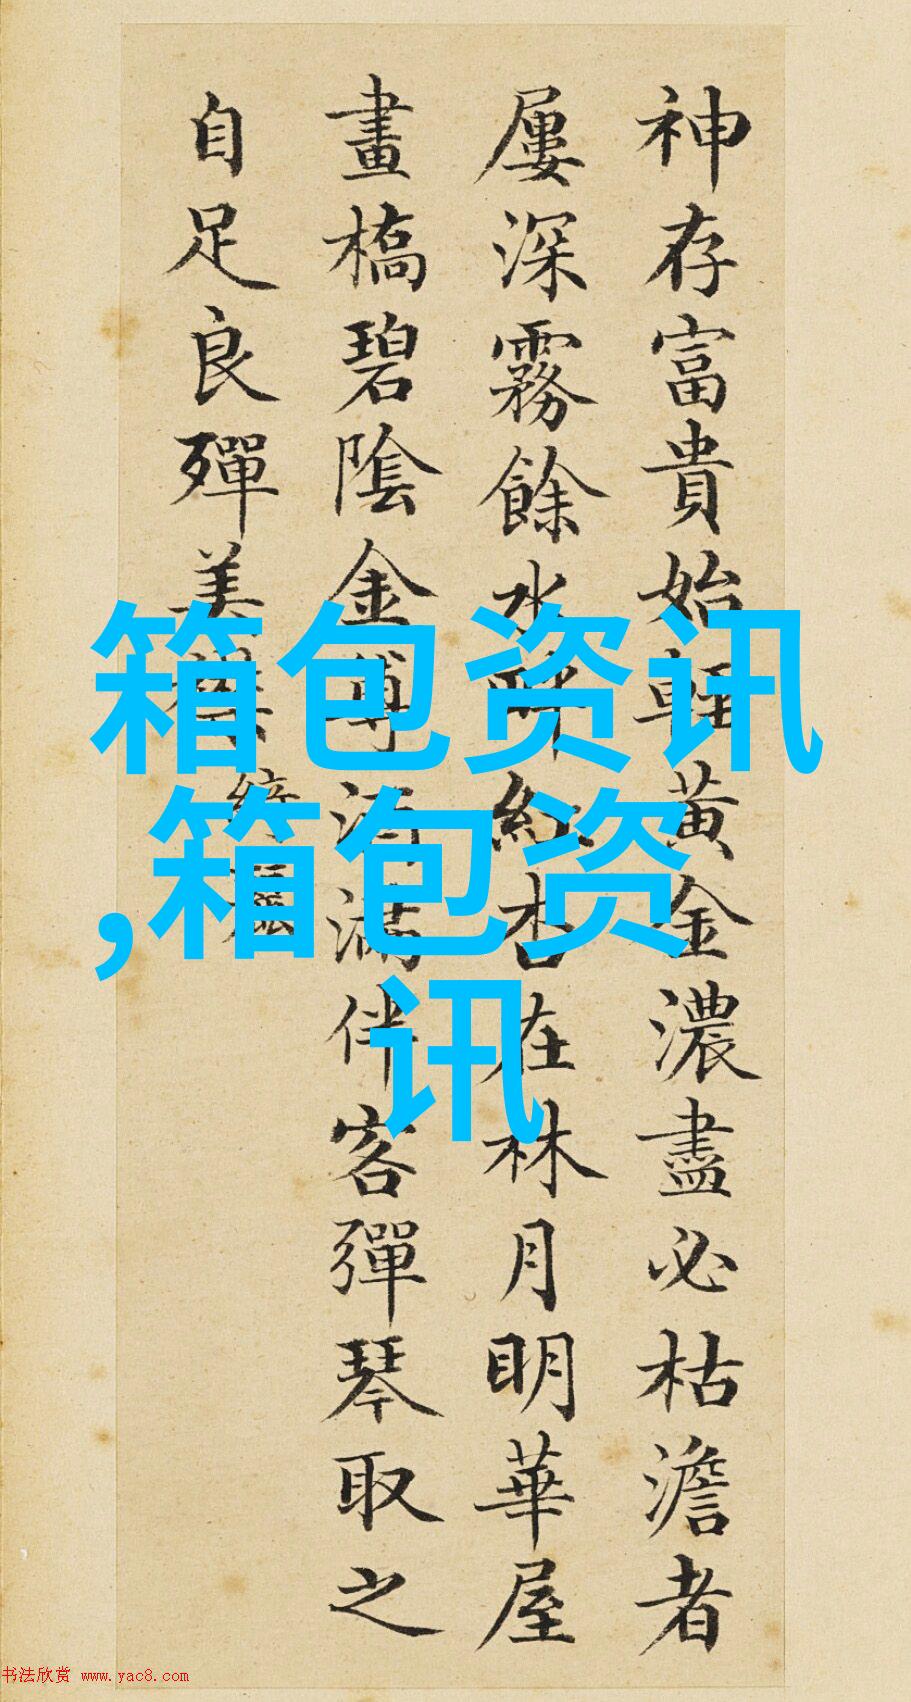 神存富貴始輕黃金濃盡必枯澹者
屢深霧餘水畔紅杏在林月明華屋
畫橋碧陰金尊酒滿伴客彈琴取之
自足良殫美襟
箱包资讯
,箱包资
讯
书法欣赏 www.yac8.com